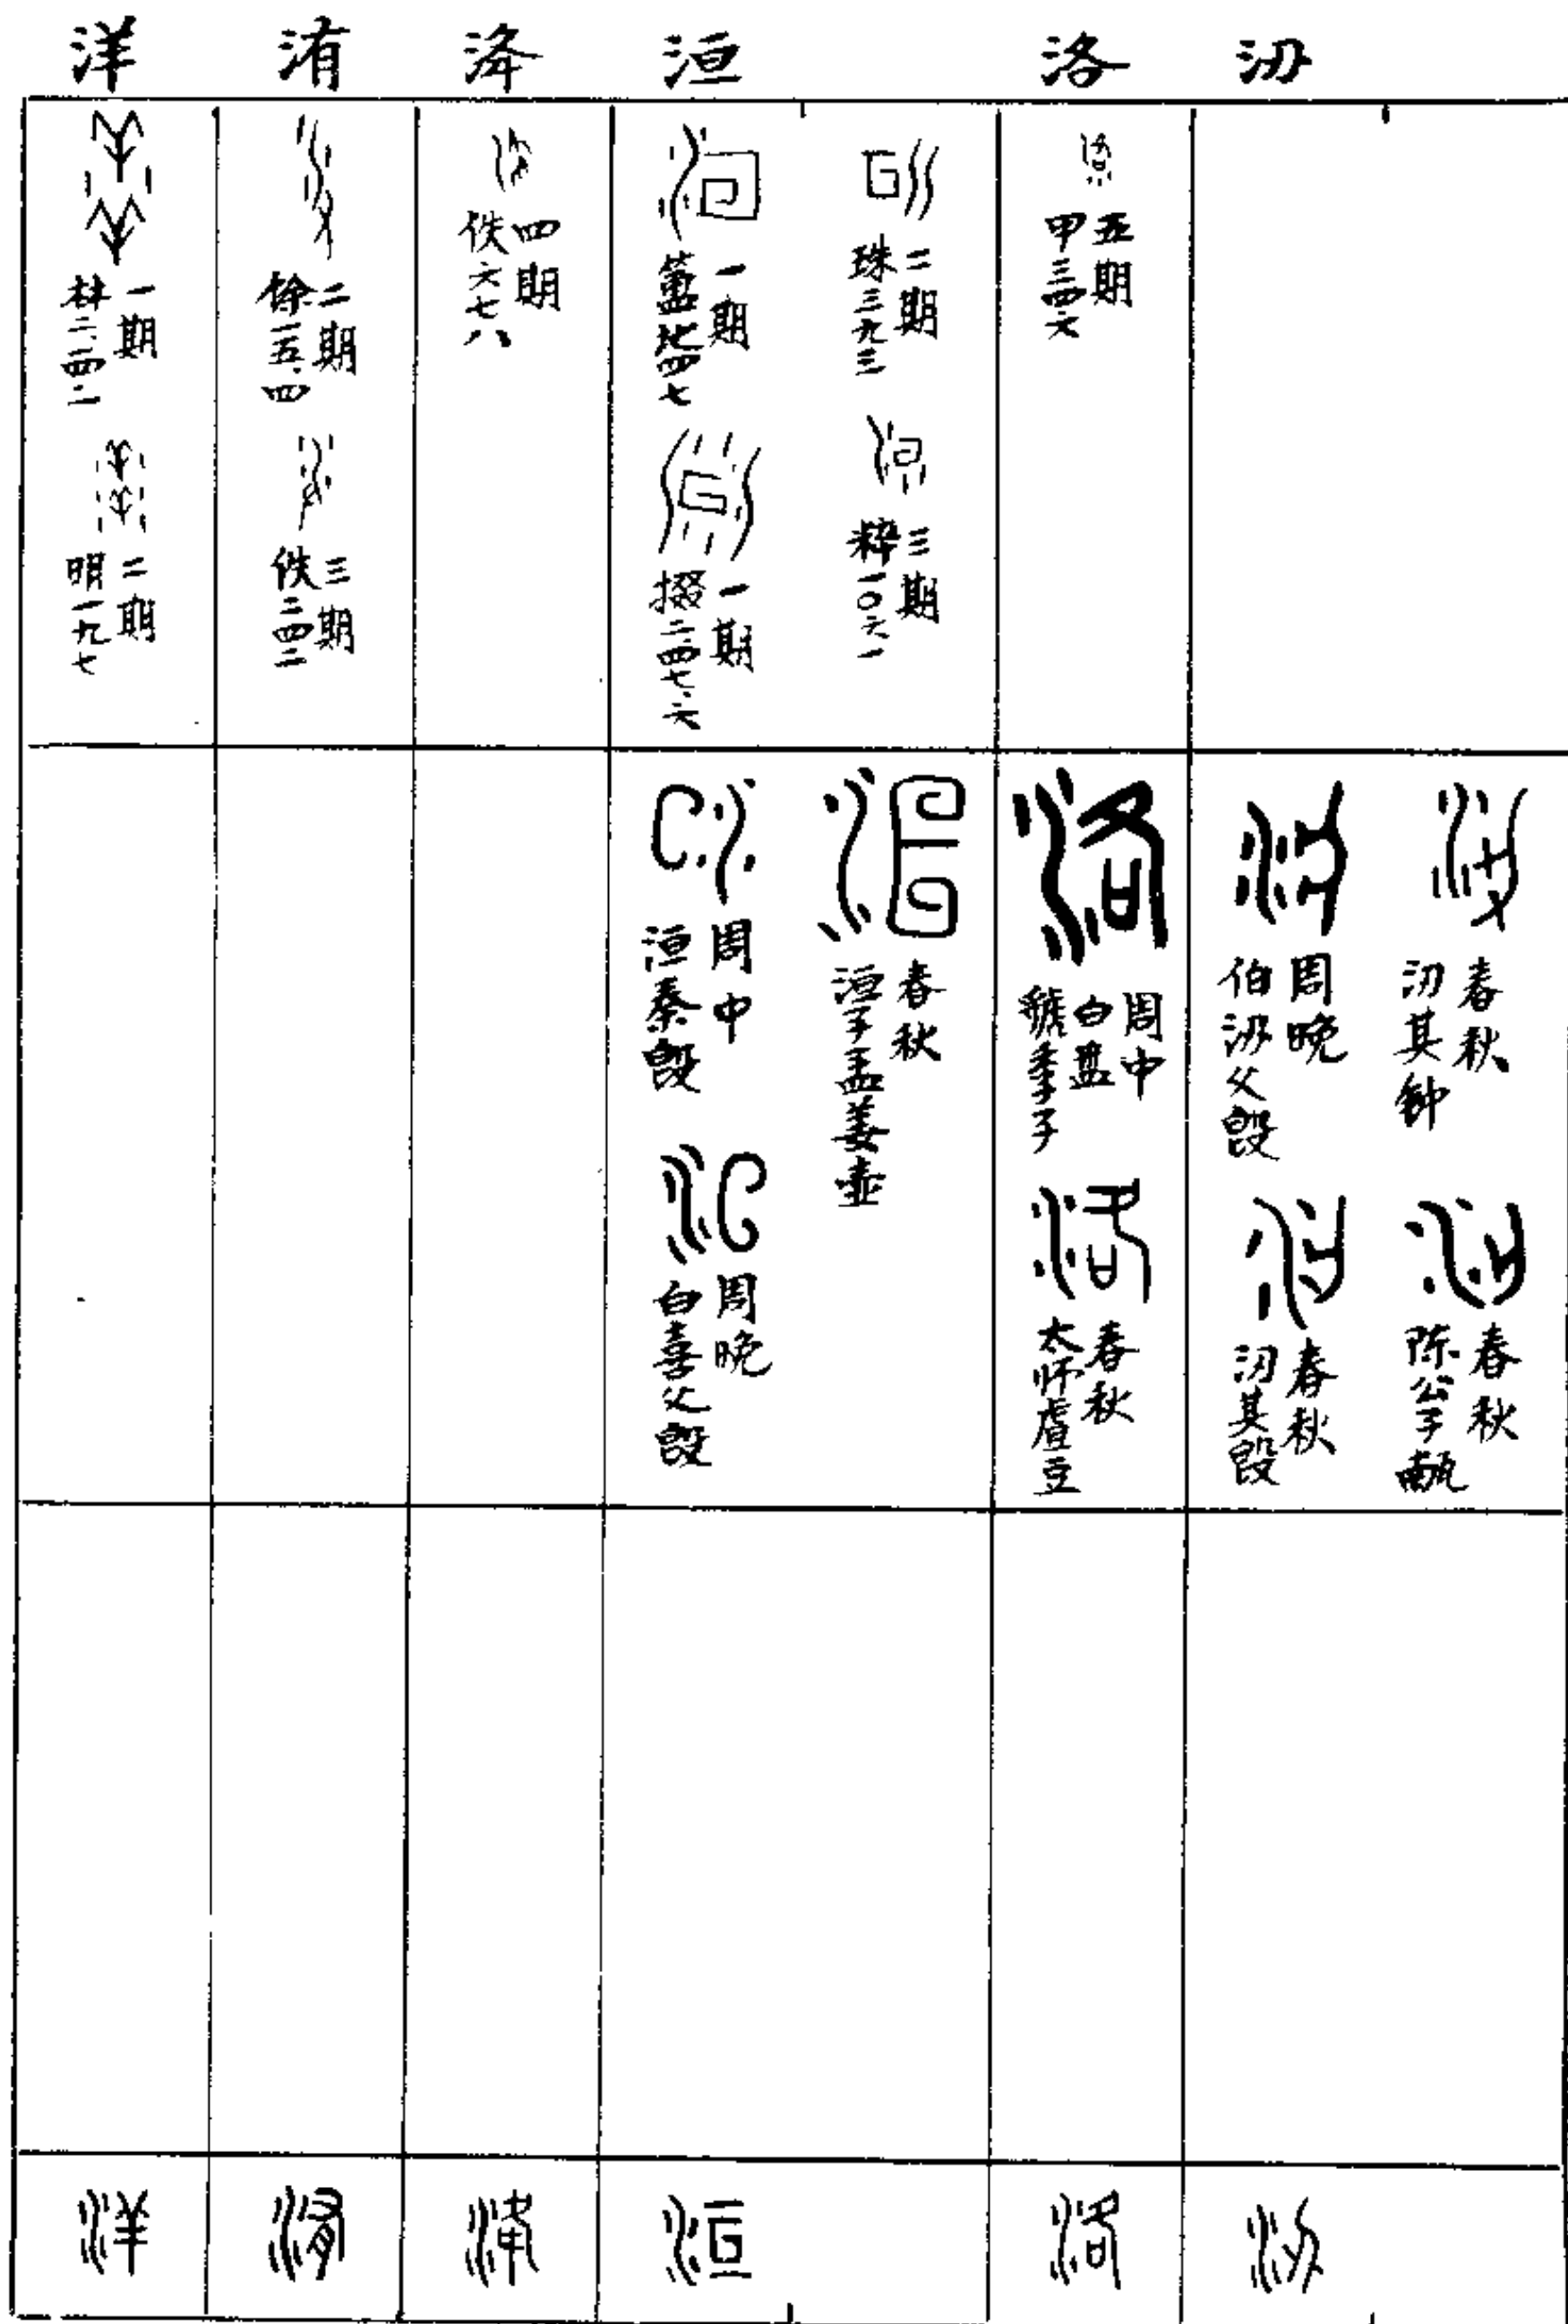 洋 洧 洚 洹 洛 汈
一期
林二·一四·二
二期
明一九七
二期
三期
佚二四二
四期
佚六七八
一期
一期
掇二·四七六
二期
珠三九三
三期
粹一〇六一
五期
甲三四六
周中
洹秦𣪘
周晚
白喜父𣪘
春秋
洹子孟姜壶
周中
虢季子
白盘
春秋
太师虘豆
周晚
伯汈父𣪘
春秋
汈其𣪘
春秋
汈其钟
春秋
陈公子甗
洋 洧 洚 洹 洛 汈